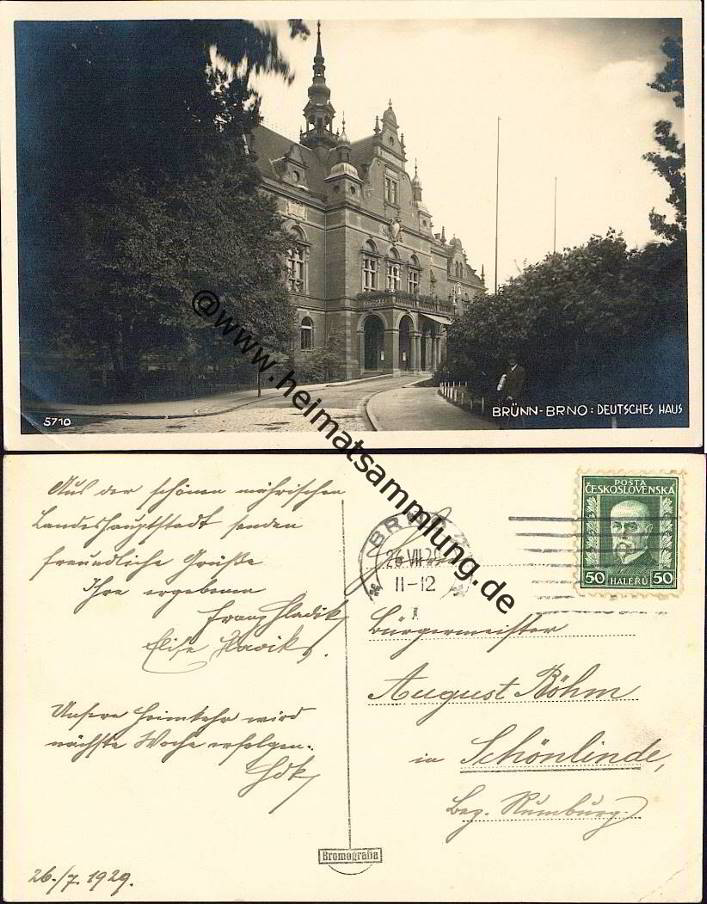 5710
BRÜNN-BRNO: DEUTSCHES HAUS
@www.heimatsammlung.de
Aus der schönen mährischen
Landeshauptstadt senden
freundliche Grüße
Ihre ergebenen
Franz Hladik
Elise Hladik.
Unsere Heimkehr wird
nächste Woche erfolgen.
Hdk
26./7. 1929.
BRNO
26 VII 29
11-12
POSTA
ČESKOSLOVENSKA
50 HALERŮ 50
Bürgermeister
August Böhm
in Schönlinde,
Bez. Rumburg.
Bromografia